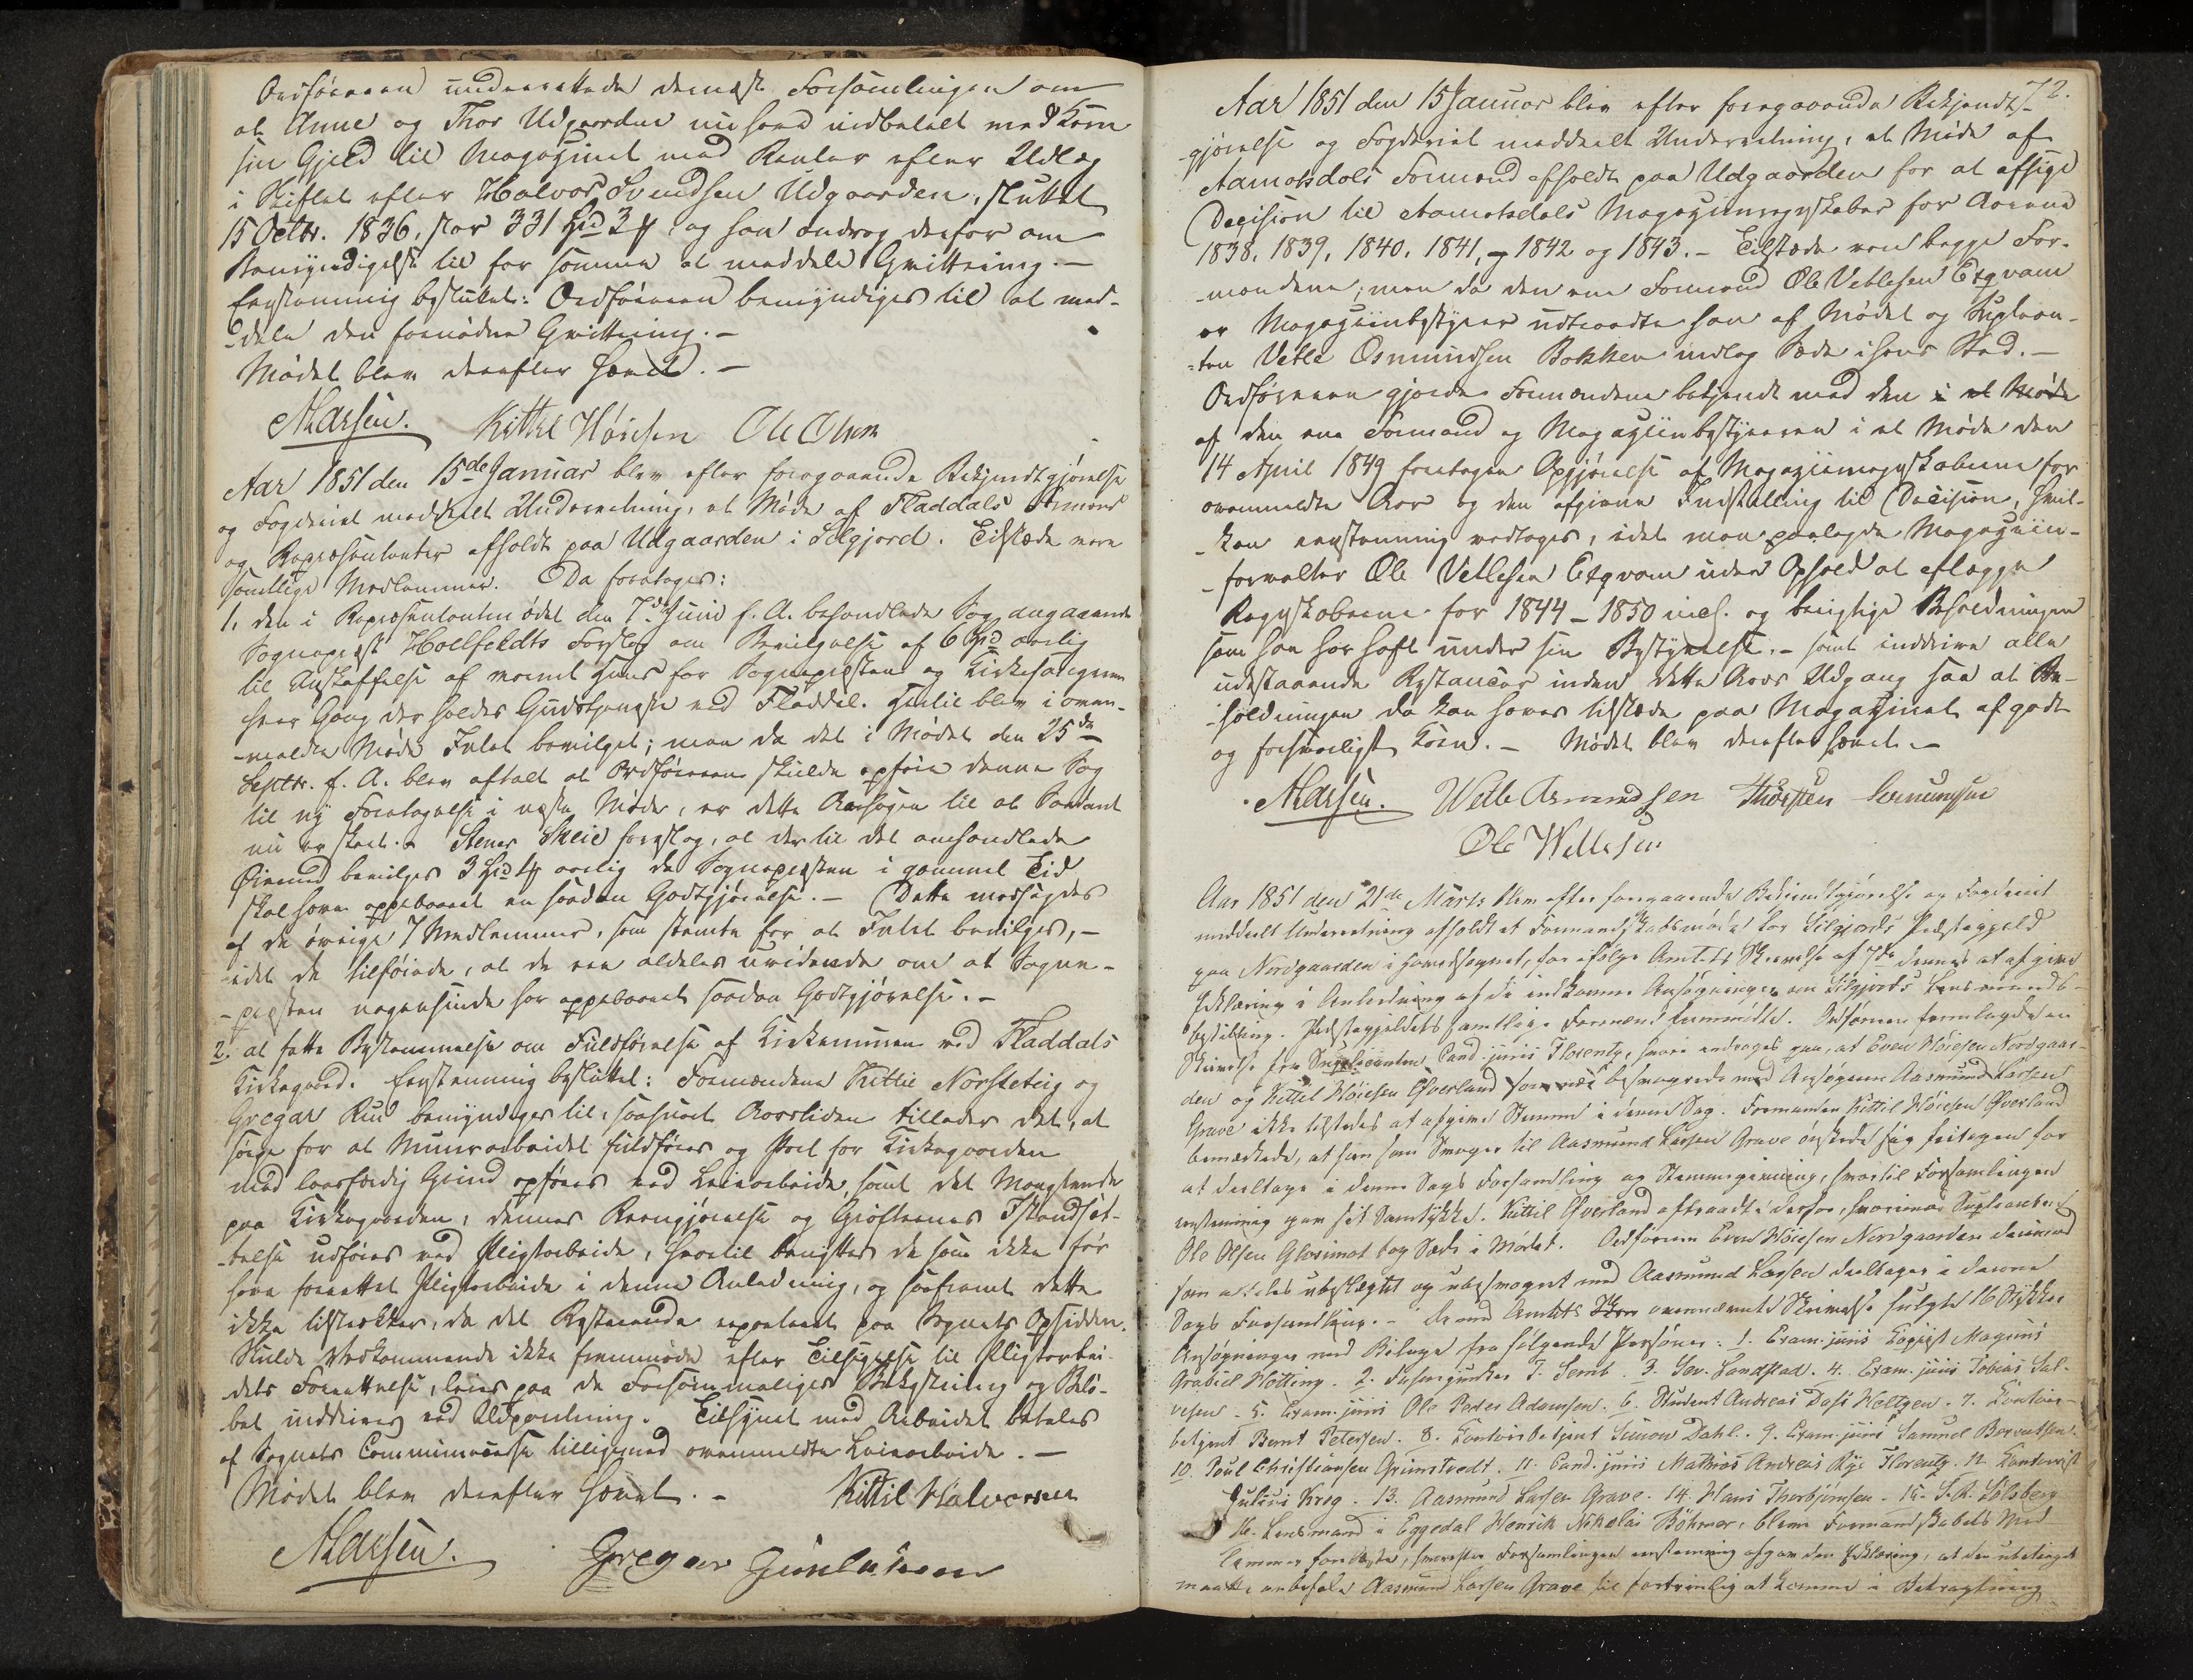 Ordføreren underrettede dernæst Forsamlingen om
at Anne og Thor Udgaarden nu havde indbetalt med Korn
sin Gjeld til Magazinet med Renter efter Udlæg
i Skiftet efter Halvor Svendsen Udgaarden, sluttet
15 Octbr. 1836, stor 331 og han androg derfor om
Bemyndigelse til for samme at meddele Qvittering. –
Eenstemmig besluttet: Ordføreren bemyndiges til at med-
dele den fornødne Qvittering. –
Mødet blev derefter hævet. –
Kittel Høiesen Ole Olsen
Aar 1851 den 15de Januar blev efter foregaaende Bekjendtgjørelse
og Fogderiet meddeelt Underretning, et Møde af Fladdals Formænd
og Repræsentanter afholdt paa Udgaarden i Silgjord. Tilstæde vare
samtlige Medlemmer. Da foretoges:
1. den i Repræsentantmødet den 7de Juni f. A. behandlede Sag angaaende
Sognepræst Hoelfeldts Forslag om Bevilgelse af 6 Spd aarlig
til Anskaffelse af varmt Huus for Sognepræsten og Kirkesangeren
hver Gang der holdes Gudstjeneste ved Fladdal. Hertil blev i oven-
meldte Møde Intet bevilget; men da det i Mødet den 25de
Septbr. f. A. blev aftalt at Ordføreren skulde opføre denne Sag
til ny Foretagelse i næste Møde, er dette Aarsagen til at Saadant
nu er skeet. – Stener Skeie foreslog, at der til det omhandlede
Øiemed bevilges 3 aarlig da Sognepræsten i gammel Tid
skal have oppebaaret en saadan Godtgjørelse. – Dette modsagdes
af de øvrige 7 Medlemmer, som stemte for at Intet bevilges, –
idet de tilføiede, at de ere aldeles uvidende om at Sogne-
præsten nogensinde har oppebaaret saadan Godtgjørelse. –
2. at fatte Bestemmelse om Fuldførelse af Kirkemuren ved Fladdals
Kirkegaard. Eenstemmig besluttet: Formændene Kittil Norsteteig og
Gregar Rui bemyndiges til, saasnart Aarstiden tillader det, at
sørge for at Muurarbeidet fuldføres og Port for Kirkegaarden
med laasfærdig Grind opføres ved Leiearbeide, samt det Manglende
paa Kirkegaarden, dennes Rengjørelse og Grøfternes Istandsæt-
telse udføres ved Pligtarbeide, hvortil benyttes de som ikke før
have forrettet Pligtarbeide i denne Anledning, og saafremt dette
ikke tilstrækker, da det Resterende reparteret paa Sognets Opsiddere.
Skulde Vedkommende ikke fremmøde efter Tilsigelse til Pligtarbei-
dets Forrettelse, leies paa de Forsømmeliges Bekostning og Belø-
bet inddrives ved Udpantning. Tilsynet med Arbeidet betales
af Sognets Communecasse tilligemed ovenmeldte Leiearbeide. –
Mødet blev derefter hævet. – Kittil Halvorsen
Gregar Gunleiksen
72.
Aar 1851 den 15 Januar blev efter foregaaende Bekjendt-
gjørelse og Fogderiet meddeelt Underretning, et Møde af
Aamotsdals Formænd afholdt paa Udgaarden for at afsige
Decision til Aamotsdals Magazinregnskaber for Aarene
1838, 1839, 1840, 1841, 1842 og 1843. – Tilstæde vare begge For-
mændene; men da den ene Formand Ole Vetlesen
er Magaziinbestyrer udtraadte han af Mødet og Suplean-
ten Vetle Osmundsen Bakken indtog Sæde i hans Sted. –
Ordføreren gjorde Formændene bekjendt med den i et Møde
af den ene Formand og Magaziinbestyreren i et Møde den
14 April 1849 foretagne Opgjørelse af Magaziinregnskaberne for
ovenmeldte Aar og den afgivne Indstilling til Decision, hvil-
ken eenstemmig vedtoges, idet man paalagde Magaziin-
forvalter Ole Vetlesen uden Ophold at aflægge
Regnskaberne for 1844 – 1850 incl. og berigtige Beholdningen
som han har havt under sin Bestyrelse. – samt inddrive alle
udestaaende Restancer inden dette Aars Udgang saa at Be-
holdningen da kan haves tilstæde paa Magazinet af godt
og forsvarligt Korn. – Mødet blev derefter hævet. –
Ole Wetlesen
Aar 1851 den 21de Marts blev efter foregaaende Bekjendtgjørelse og Fogderiet
meddeelt Underretning afholdt et Formandskabsmøde for Silgjords Præstegjeld
paa Nordgaarden i Hovedsognet, for ifølge Amtets Skrivelse af 7de dennes at afgive
Erklæring i Anledning af de indkomne Ansøgninger om Silgjords Lensmands-
bestilling. Præstegjeldets samtlige Formænd fremmødte. Ordføreren fremlagde en
Skrivelse fra Supplicanten Cand. juris Florentz, hvori androges paa, at Even Høiesen Nordgaar-
den og Kittel Høiesen Øverland som nær besvogrede med Ansøgeren Aasmund Larsen
Grave ikke tilstedes at afgive Stemme i denne Sag. Formanden Kittil Høiesen Øverland
bemærkede, at han som Svoger til Aasmund Larsen Grave ønskede sig fritagen for
at deeltage i denne Sags Forhandling og Stemmegivning, hvortil Forsamlingen
eenstemmig gav sit Samtykke. Kittil Øverland aftraadte derfor, hvorimod Supleanten
Ole Olsen Glosimot tog Sæde i Mødet. Ordføreren Even Høiesen Nordgaarden derimod
som aldeles ubeslægtet og ubesvogret med Aasmund Larsen deeltager i denne
Sags Forhandling. – De med Amtets ovennævnte Skrivelse fulgte 16 Stykker
Ansøgninger med Bilage fra følgende Personer: 1. Exam. juris Magnus
Gabriel Hötting. 2. J. Semb. 3. Sev. Landstad. 4. Exam. juris Tobias Sal-
vesen. 5. Exam. juris Ole Peder Adamsen. 6. Student Andreas Dass Weltzen. 7. Contoir-
betjent Bernt Petersen. 8. Contoirbetjent Simon Dahl. 9. Exam. juris Samuel
10. Poul Christiansen Grimstvedt. 11. Cand. juris Mathias Andreas Rye Florentz. 12. Kontorist
Julius Krog. 13. Aasmund Larsen Grave. 14. Hans Thorbjørnsen. 15. Sølsberg
16. Lensmand i Eggedal Henrik Nikolai Böhmer, bleve Formandskabets Med
lemmer forelæste, hvorefter Forsamlingen eenstemmig afgav den Erklæring, at den ubetinget
maatte anbefale Aasmund Larsen Grave til fortrinlig at komme i Betragtning